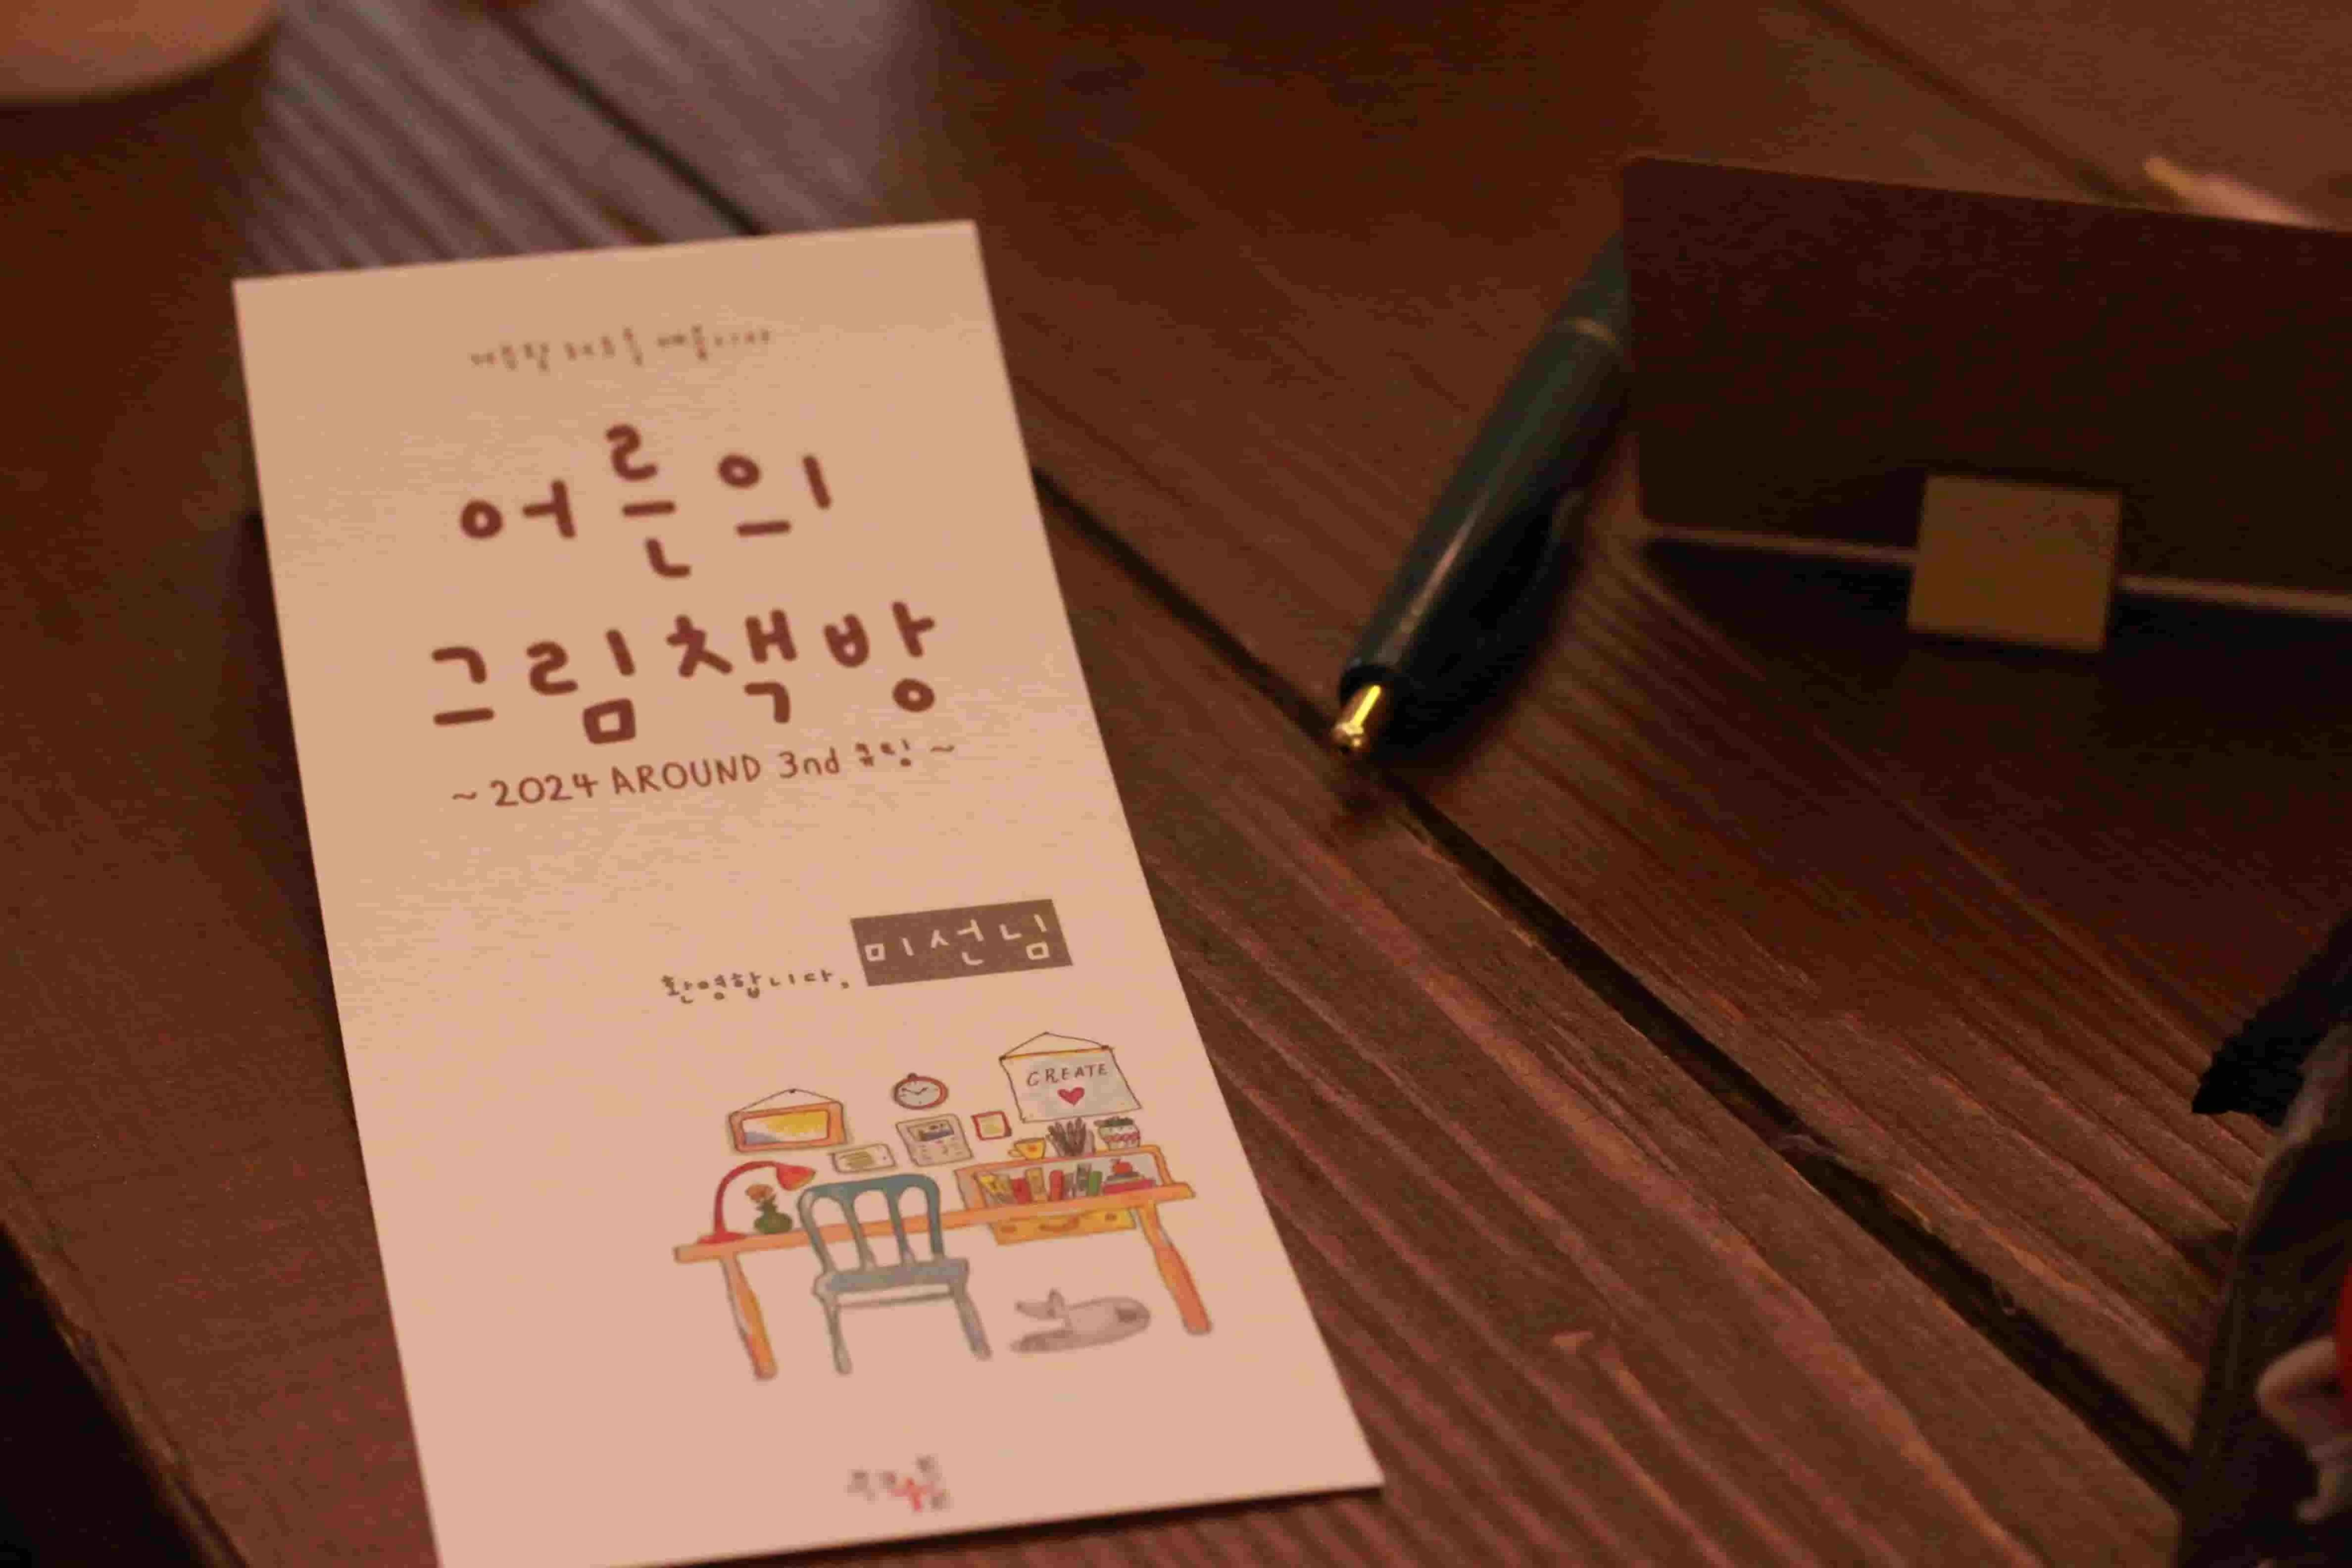 어른의
그림책방
~ 2024 AROUND 3nd 모임 ~
환영합니다, 미선님
CREATE